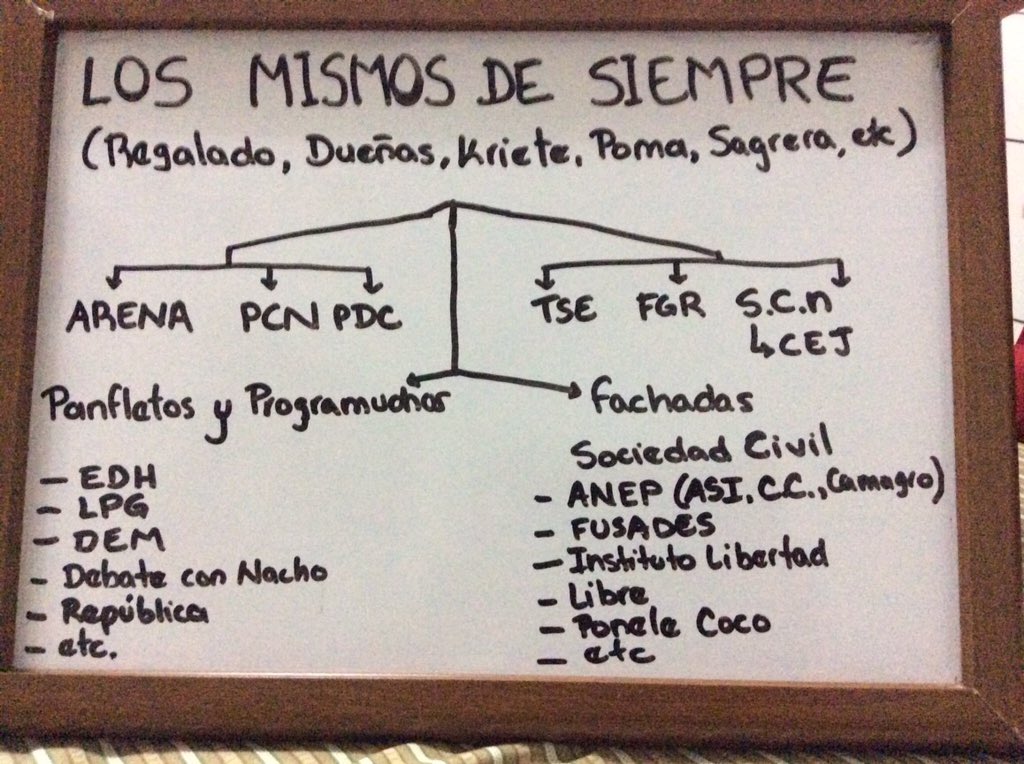 LOS MISMOS DE SIEMPRE
(Regalado, Dueñas, Kriete, Poma, Sagrera, etc)
ARENA PCN PDC
TSE FGR S.C.n
↳ CEJ
Panfletos y Programuchos
- EDH
- LPG
- DEM
- Debate con Nacho
- República
- etc.
fachadas
Sociedad Civil
- ANEP (ASI, C.C., Camagro)
- FUSADES
- Instituto Libertad
- Libre
- Ponele Coco
- etc